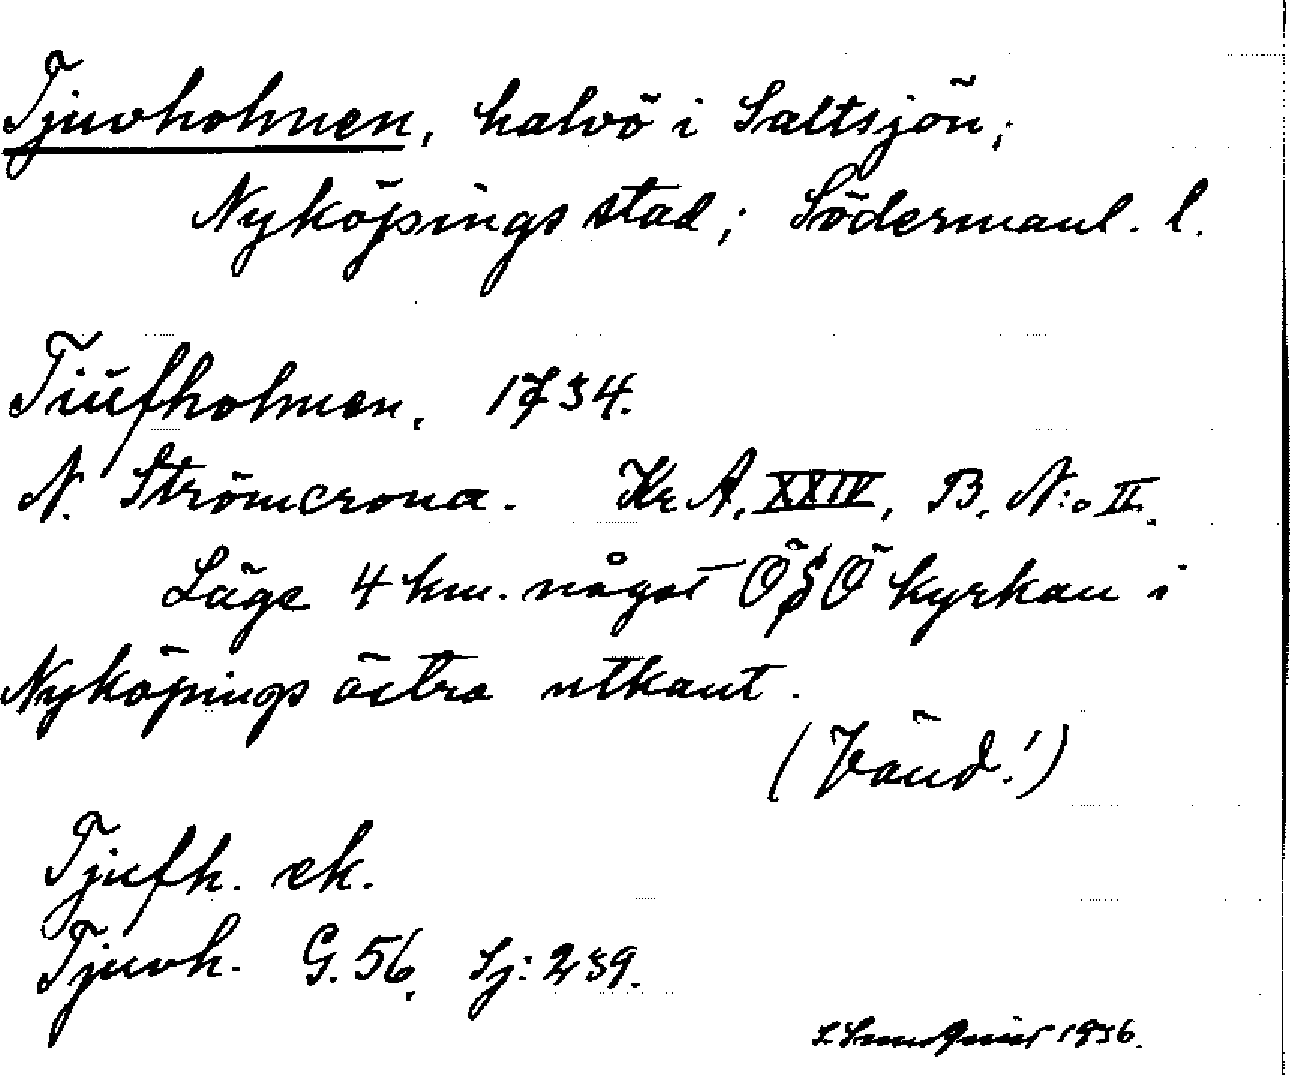 Tjuvholmen, halvö i Saltsjön;
Nyköpings stad; Södermanl. l.
Tiüfholmen, 1734.
N. Strömcrona. Kr. A. XXIV, B. N:o II.
Läge 4 km. något ÖSÖ kyrkan i
Nyköpings östra utkant.
(Vänd!)
Tjufh. ek.
Tjuvh. G. 56. Sj: 239.
1936.